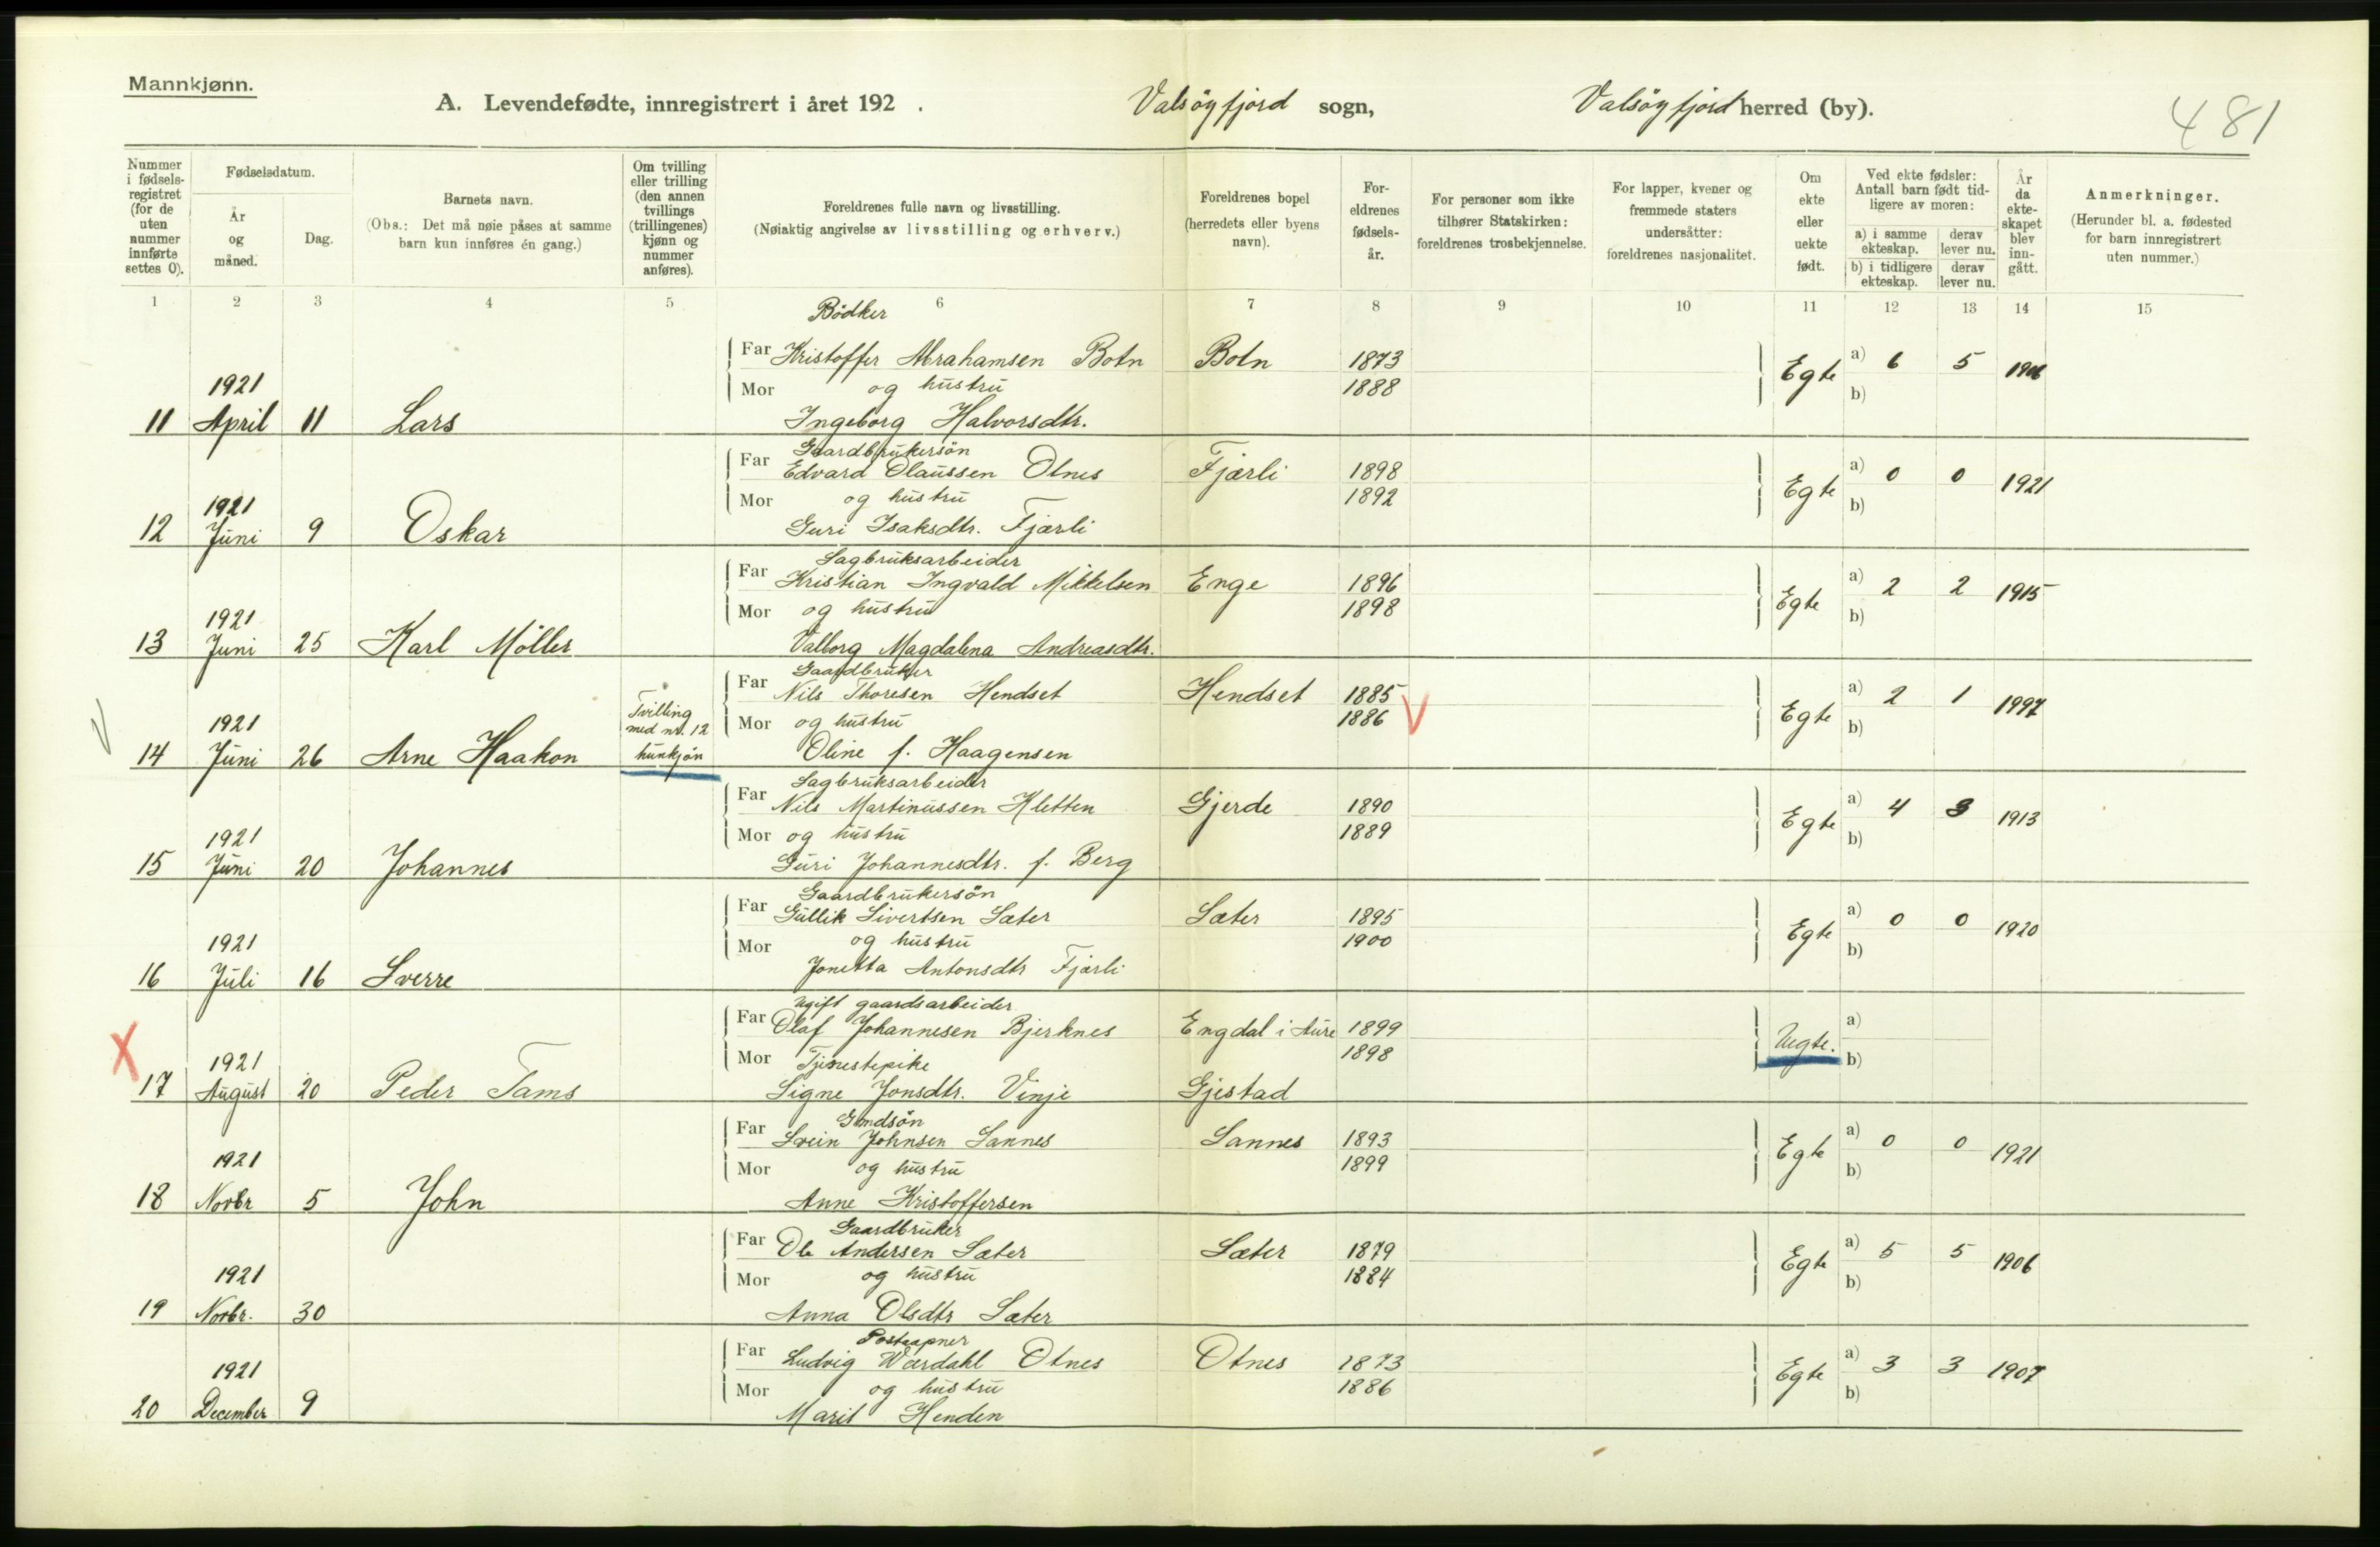 Mannkjønn.
A. Levendefødte, innregistrert i året 192 . Valsöyfjord sogn, Valsöyfjord herred (by).
481
Nummer i fødsels-registret (for de uten nummer innførte settes 0).
Fødselsdatum.
År og måned.
Dag.
Barnets navn.
(Obs.: Det må nøie påses at samme barn kun innføres én gang.)
Om tvilling eller trilling (den annen tvillings (trillingenes) kjønn og nummer anføres).
Foreldrenes fulle navn og livsstilling.
(Nøiaktig angivelse av livsstilling og erhverv.)
Foreldrenes bopel
(herredets eller byens navn).
For-eldrenes fødsels-år.
For personer som ikke tilhører Statskirken: foreldrenes trosbekjennelse.
For lapper, kvener og fremmede staters undersåtter: foreldrenes nasjonalitet.
Om ekte eller uekte født.
Ved ekte fødsler: Antall barn født tid-ligere av moren:
a) i samme ekteskap. derav lever nu.
b) i tidligere ekteskap. derav lever nu.
År da ekte-skapet blev inn-gått.
Anmerkninger.
(Herunder bl. a. fødested for barn innregistrert uten nummer.)
1 2 3 4 5 6 7 8 9 10 11 12 13 14 15
Bödker
Far Kristoffer Abrahamsen Botn Botn 1873
1921 Mor og hustru 1888 Egte a) 6 5 1906
b)
11 April 11 Lars Ingeborg Halvorsdtr.
Gaardbrukersön
Far Edvard Olaussen Otnes Fjærli 1898
1921 Mor og hustru 1892 Egte a) 0 0 1921
b)
12 Juni 9 Oskar Guri Isaksdtr. Fjærli
Sagbruksarbeider
Far Kristian Ingvald Mikkelsen Enge 1896
1921 Mor og hustru 1898 Egte a) 2 2 1915
b)
13 Juni 25 Karl Möller Valborg Magdalena Andreasdtr.
Gaardbruker
Far Nils Thoresen Hendset Hendset 1885
1921 Tvilling med nr. 12 hunkjön Mor og hustru 1886 V Egte a) 2 1 1997
b)
14 Juni 26 Arne Haakon Oline f. Haagensen
Sagbruksarbeider
Far Nils Martinussen Kletten Gjerde 1890
1921 Mor og hustru 1889 Egte a) 4 3 1913
b)
15 Juni 20 Johannes Guri Johannesdtr. f. Berg
Gaardbrukersön
Far Gullik Sivertsen Sæter Sæter 1895
1921 Mor og hustru 1900 Egte a) 0 0 1920
b)
16 Juli 16 Sverre Jonetta Antonsdtr Fjærli
Ugift gaardsarbeider
Far Olaf Johannesen Bjerknes Engdal i Aure 1899
X 1921 Mor Tjenestepike 1898 Uegte. a)
b)
17 August 20 Peder Tams Signe Jonsdtr. Vinje Gjestad
Far Svein Johnsen Sannes Sannes 1893
1921 Mor og hustru 1899 Egte a) 0 0 1921
b)
18 Novbr 5 John Anne Kristoffersen
Gaardbruker
Far Ole Andersen Sæter Sæter 1879
1921 Mor og hustru 1884 Egte a) 5 5 1906
b)
19 Novbr. 30 Anna Olsdtr Sæter
Postaapner
Far Ludvig Værdahl Otnes Otnes 1873
1921 Mor og hustru 1886 Egte a) 3 3 1907
b)
20 December 9 Marit Henden